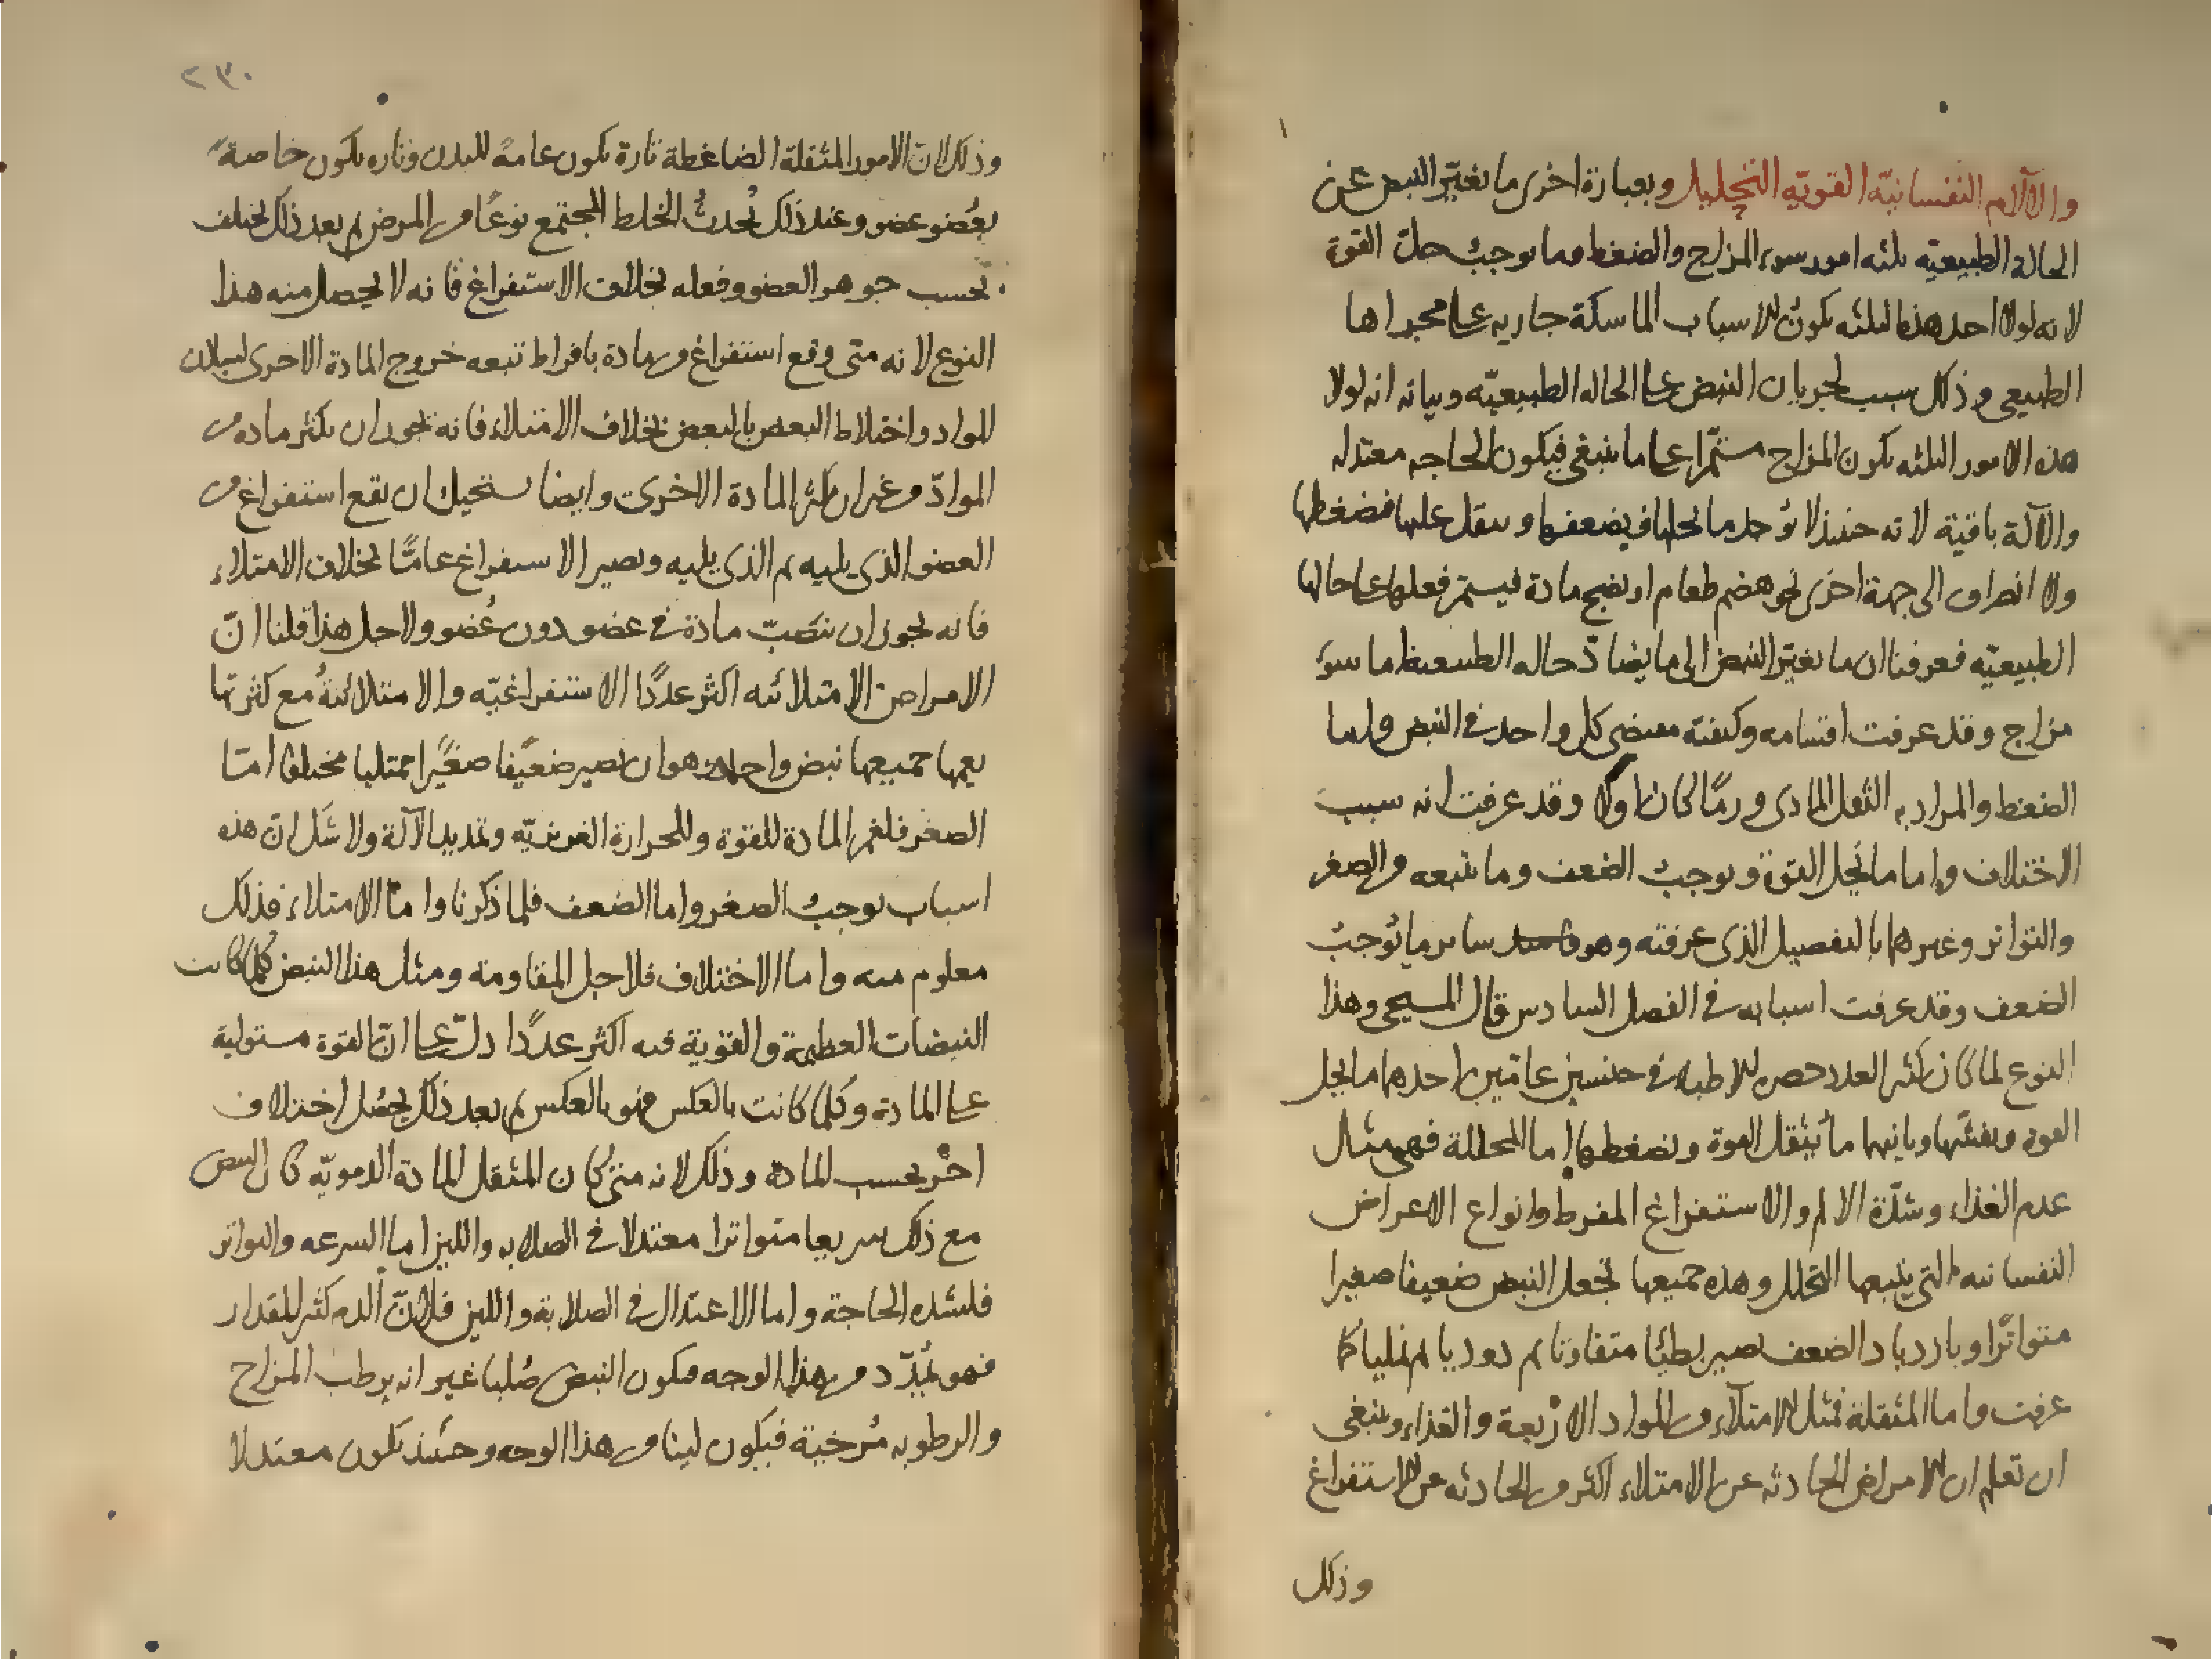 والآلام النفسانية القوية التحليل وبعبارة اخرى ما يغيّر النبض عن
الحالة الطبيعية ثلثه امور سوء المزاج والضغط وما يوجب حلّ القوة
لانه لولا احد هذه الثلثه تكون الاسباب الماسكة جاريه على مجراها
الطبيعي وذلك سبب لجريان النبض على الحاله الطبيعيّه وبيانه انه لولا
هذه الامور الثلثه يكون المزاج مستمّرا على ما ينبغى فيكون الحاجه معتدله
والآلة باقية لانه حينئذ لا يوجد ما يحلها فيضعفها ويثقل عليها فيضغطها
ولا انصراف الى جهة اخرى نحو هضم طعام او نضج مادة فيستمر فعلها على حالها
الطبيعيّه فعرفنا ان ما يغيّر النبض الى ما يضادّ حاله الطبيعية اما سوء
مزاج وقد عرفت اقسامه وكيفيّة مقتضى كل واحد في النبض واما
الضغط والمراد به الثقل المادى ورمًا كان اولا وقد عرفت انه سبب
الاختلاف واما ما يحل القوة ويوجب الضعف وما يتبعه من الصغر
والتواتر وغيرهما بالتفصيل الذى عرفته وهو سائر ما يوجب
الضعف وقد عرفت اسبابه في الفصل السادس قال المسيحي وهذا
النوع لما كان كثير العدد حصره الاطباء في جنسين عامّين احدهما ما يحل
القوة ويفشّها وثانيهما ما يثقل القوة ويضغطها اما المحللة فهى مثال
عدم الغذاء وشدّة الالم والاستفراغ المفرط وانواع الاعراض
النفسانيه التى يتبعها التحلل وهذه جميعها تجعل النبض ضعيفا صغيرا
متواترًا وبازدياد الضعف يصير بطيئا متفاوتا ثم دوديا ثم نمليا كما
عرفت واما المثقلة فمثل الامتلاء من المواد الاربعة والغذاء وينبغى
ان تعلم ان الامراض الحادثه عن الامتلاء اكثر من الحادثه عن الاستفراغ
وذلك
٢٣٠
وذلك لانّ الامور المثقلة الضاغطة تارة تكون عامةً للبدن وتاره تكون خاصةً
بعُضو عضو وعند ذلك يُحدثُ الخلط المجتمع نوعًا من المرض ثم بعد ذلك يختلف
بحسب جوهر العضو وفعله بخلاف الاستفراغ فانه لا يحصل منه هذا
النوع لانه متى وقع استفراغ من مادة بافراط تبعه خروج المادة الاخرى لسيلان
المواد واختلاط البعض بالبعض بخلاف الامتلاء فانه يجوز ان يكثر ماده من
الموادّ من غير ان يكثر المادة الاخرى وايضا يستحيل ان يقع استفراغ من
العضو الذى يليه ثم الذى يليه ويصير الاستفراغ عامًّا بخلاف الامتلاء
فانه يجوز ان تنصَبّ مادة في عضو دون عُضو ولاجل هذا قلنا انّ
الامراض الامتلائيه اكثر عددًا الاستفراغيّه والامتلائيّةُ مع كثرتها
يعمها جميعها نبض واحد هو ان يصير ضعيفًا صغيرًا ممتليا مختلفا امّا
الصغر فلغمر المادة للقوة وللحرارة الغريزيّه وتمديد الآلة ولا شك ان هذه
اسباب توجب الصغر واما الضعف فلما ذكرنا وامّا الامتلاء فذلك
معلوم منه واما الاختلاف فلاجل المقاومة ومثل هذا النبض كلما كانت
النبضات العظيمة والقوية فيه اكثر عددًا دلّت على انّ القوة مستولية
على المادة وكُلما كانت بالعكس فهو بالعكس ثم بعد ذلك يحصُل اختلاف
اخرُ بحسب المادة وذلك لانه متى كان المثقل المادة الدمويّه كان النبض
مع ذلك سريعا متواترا معتدلا في الصلابه واللين اما السرعه والتواتر
فلشده الحاجة واما الاعتدال في الصلابة واللين فلانّ الدم كثير المقدار
فهو يُمدّد من هذا الوجه فيكون النبض صُلبا غير انه يرطب المزاج
والرطوبه مُرخية فيكون لينا من هذا الوجه وحينئذ يكون معتدلا